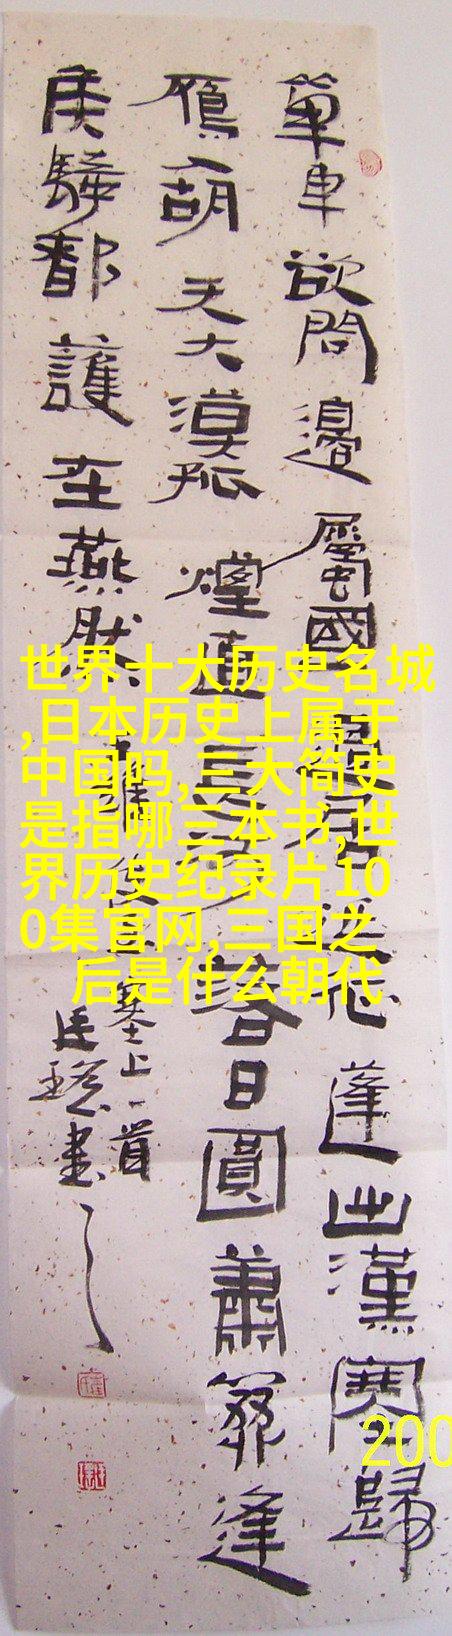 單車欲問邊屬國過居延征蓬出漢塞歸
鴈入胡天大漠孤煙直長河落日圓蕭關逢
候騎都護在燕然
王維使至塞上一首
書
世界十大历史名城
,日本历史上属于
中国吗,三大简史
是指哪三本书,世
界历史纪录片10
0集官网,三国之
后是什么朝代
200